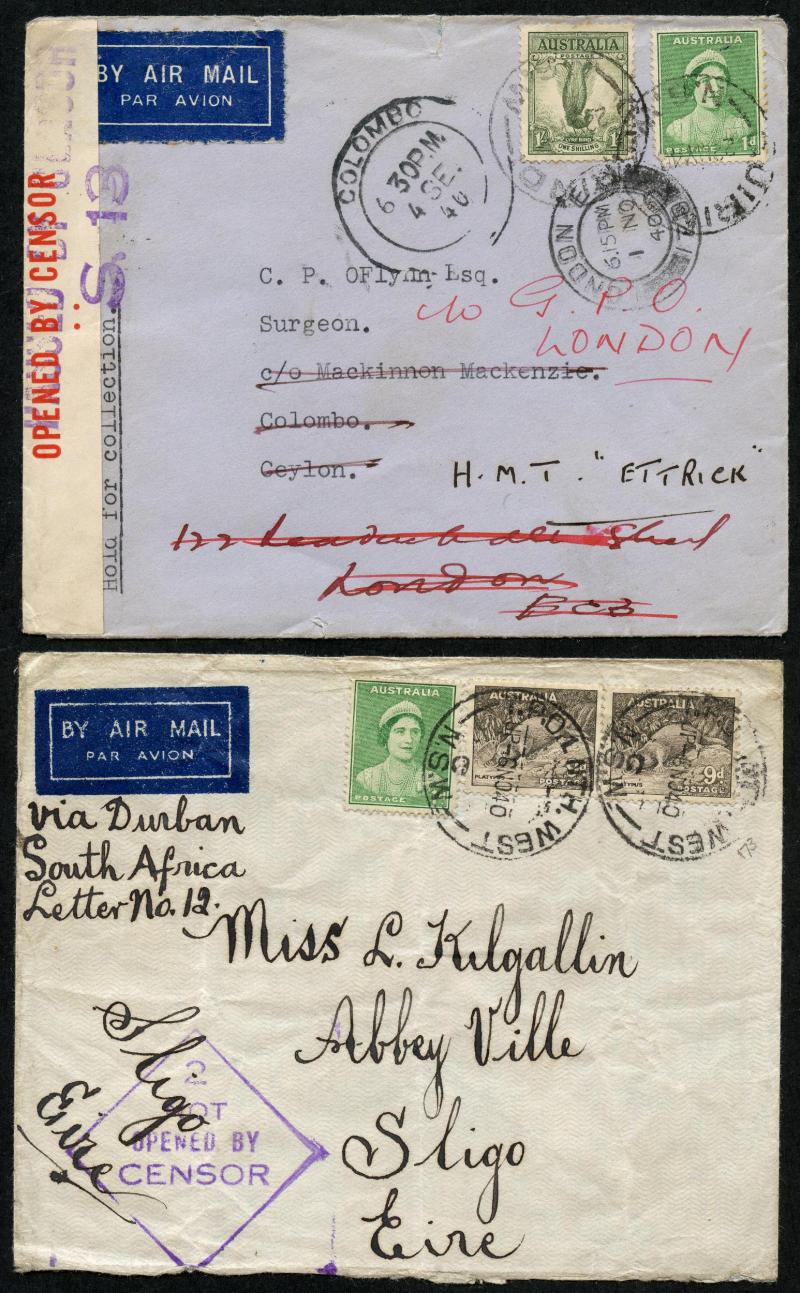 BY AIR MAIL
PAR AVION
AUSTRALIA
POSTAGE
1/-
LYRE BIRD
ONE SHILLING
AUSTRALIA
1d
COLOMBO
6 30 P.M.
4 SE.
40
LONDON
6.15 PM
1 NO
40
OPENED BY CENSOR
PASSED BY CENSOR
S. 13
Hold for collection.
C. P. OFlynn Esq.
Surgeon.
c/o Mackinnon Mackenzie.
Colombo.
Ceylon.
c/o G.P.O.
LONDON
H.M.T. "ETTRICK"
122 Leadenhall Street
London
EC3
BY AIR MAIL
PAR AVION
AUSTRALIA
POSTAGE
AUSTRALIA
PLATYPUS
POSTAGE
AUSTRALIA
9d
PLATYPUS
POSTAGE
WEST
N.S.W.
6 NO 40
WEST
N.S.W.
6 NO 40
173
via Durban
South Africa
Letter No. 12.
Miss L. Kilgallin
Abbey Ville
Sligo
Eire
Sligo
Eire
2
NOT
OPENED BY
CENSOR